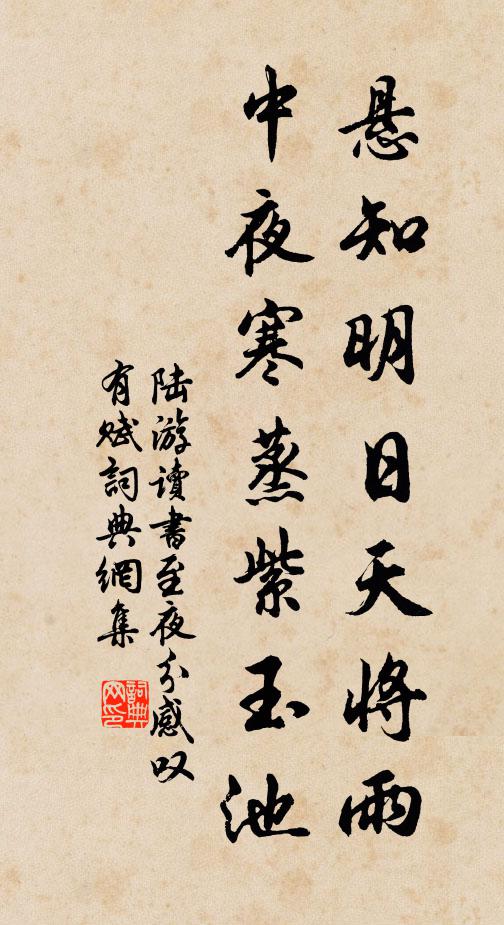 悬知明日天将雨
中夜寒蒸紫玉池
陆游读書至夜分感叹
有赋詞典網集
詞典
网印